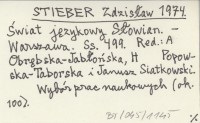 STIEBER Zdzisław 1974
Świat językowy Słowian. –
Warszawa. Ss. 499. Red.: A
Obrębska-Jabłońska, H Popow-
ska-Taborska i Janusz Siatkowski.
Wybór prac naukowych (ok.
100).